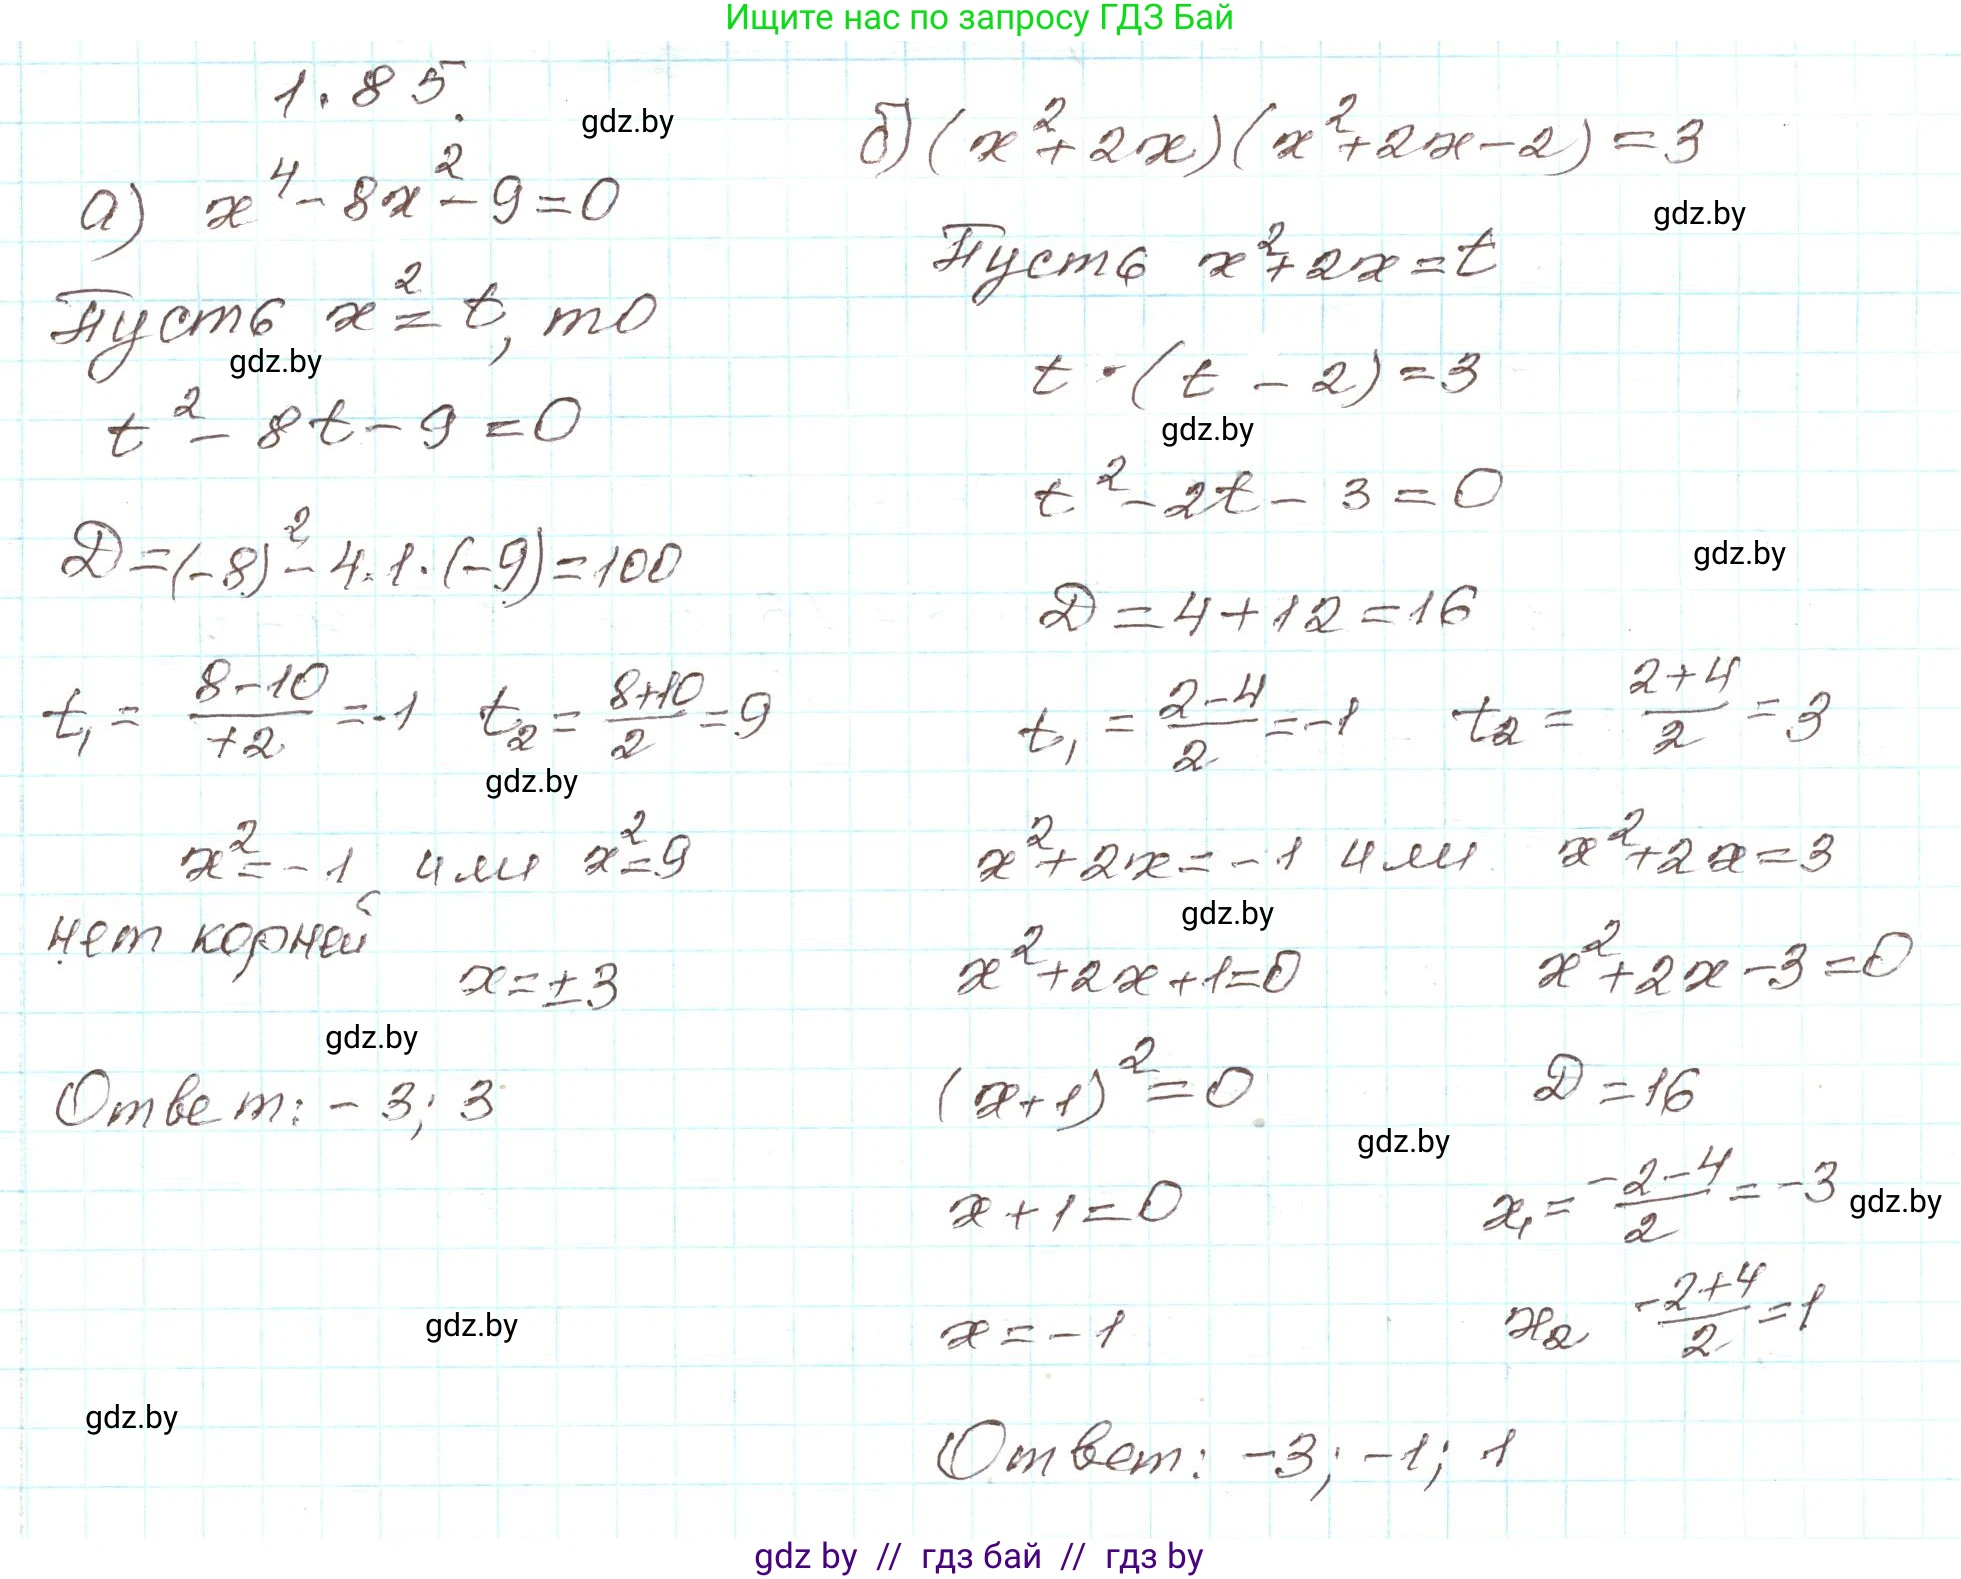 Ищите нас по запросу ГДЗ Бай
1.85.
gdz.by
а) x⁴ - 8x² - 9 = 0
Пусть x² = t, то
gdz.by
t² - 8t - 9 = 0
D = (-8)² - 4·1·(-9) = 100
t₁ = (8-10)/+2 = -1 t₂ = (8+10)/2 = 9
gdz.by
x² = -1 или x² = 9
нет корней
x = ±3
gdz.by
Ответ: -3; 3
gdz.by
gdz.by
б) (x² + 2x)(x² + 2x - 2) = 3
gdz.by
Пусть x² + 2x = t
t · (t - 2) = 3
gdz.by
t² - 2t - 3 = 0
gdz.by
D = 4 + 12 = 16
t₁ = (2-4)/2 = -1 t₂ = (2+4)/2 = 3
x² + 2x = -1 или x² + 2x = 3
gdz.by
x² + 2x + 1 = 0 x² + 2x - 3 = 0
(x+1)² = 0 D = 16
gdz.by
x + 1 = 0 x₁ = (-2-4)/2 = -3 gdz.by
x = -1 x₂ (-2+4)/2 = 1
Ответ: -3; -1; 1
gdz by // гдз бай // гдз by